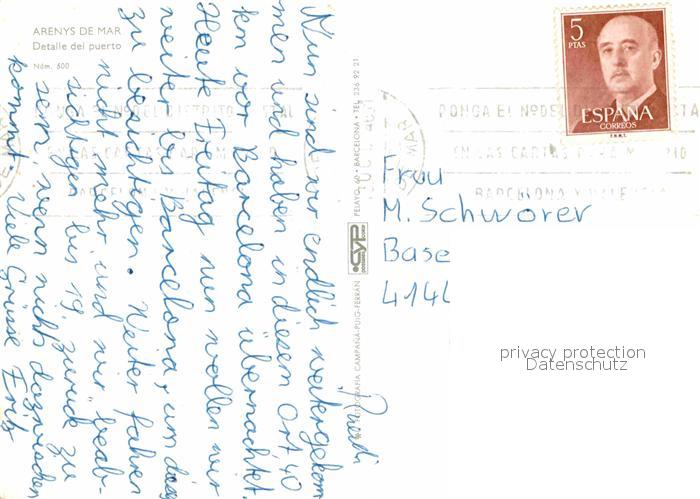 ARENYS DE MAR
Detalle del puerto
Núm. 500
Nun sind wir endlich weitergekom
men und haben in diesem Ort 40
km vor Barcelona übernachtet.
Heute Freitag nun wollen wir
weiter bis Barcelona, um dies
zu besichtigen. Weiter fahren
nicht mehr und wir beab-
sichtigen bis 19. zurück zu
sein, wenn nicht dazwischen
kommt. Viele Grüsse Fritz
Ruedi
FOTOGRAFIA CAMPAÑA-PUIG-FERRAN
CYP
PELAYO, 60 • BARCELONA • TEL. 236 92 21
PONGA EL Nº DEL DISTRITO POSTAL
EN LAS CARTAS PARA MADRID
BARCELONA Y
5
PTAS
ESPAÑA
CORREOS
F.N.M.T.
Frau
M. Schwörer
Base
4144
privacy protection
Datenschutz